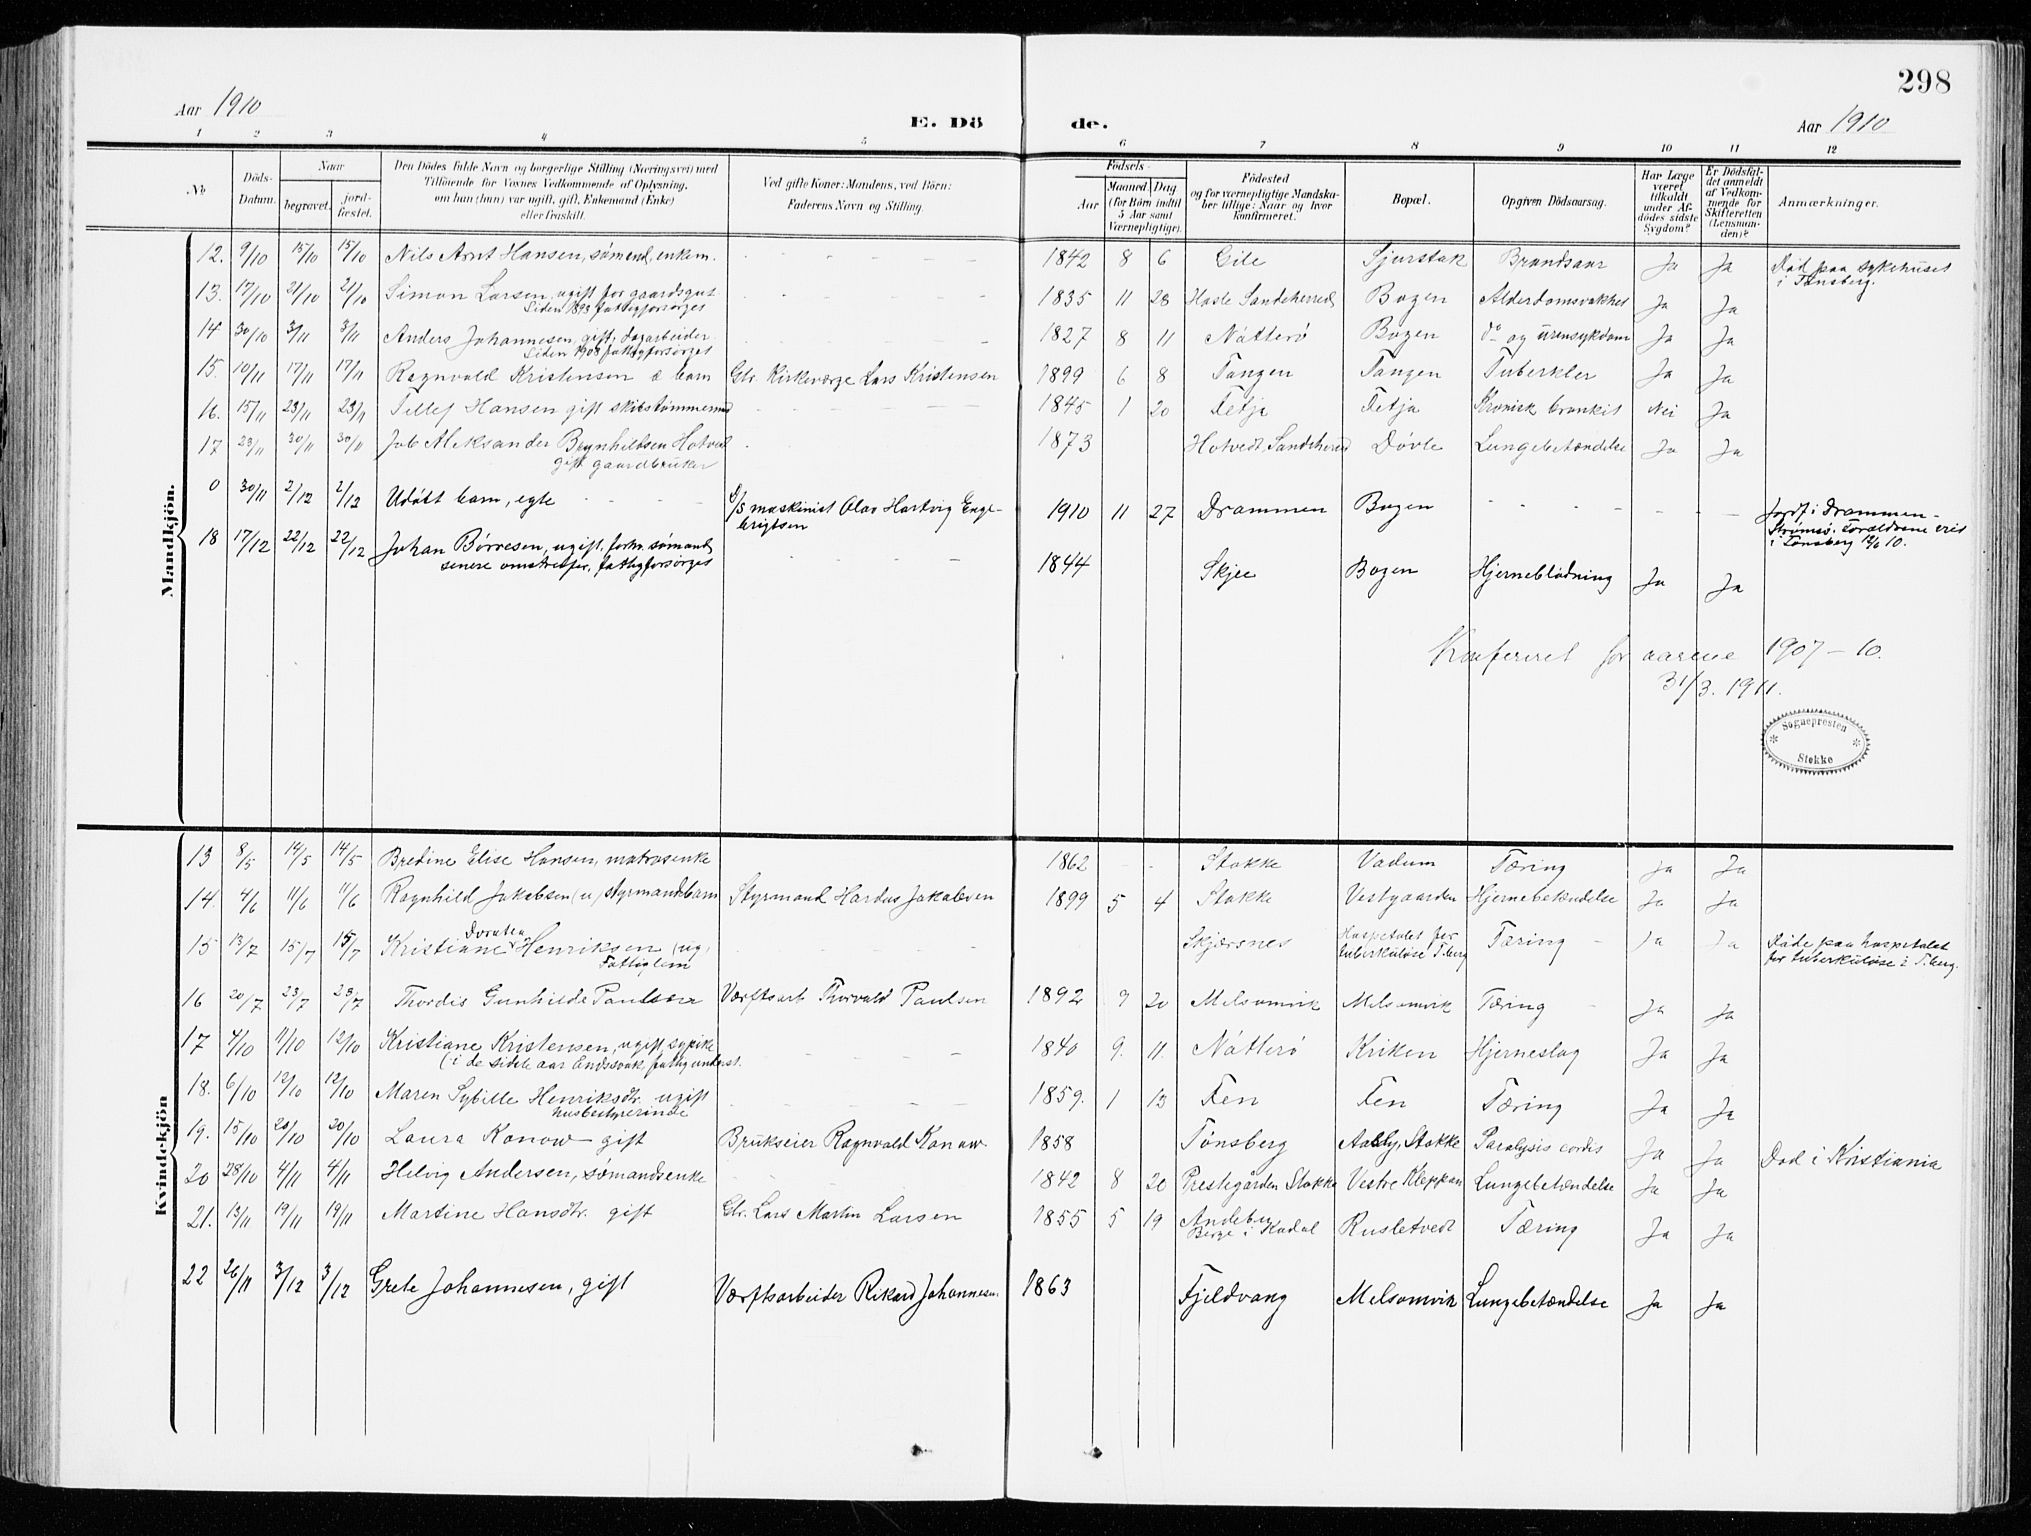 298
Aar 1910 E. Dö de. Aar 1910
1 2 3 4 5 6 7 8 9 10 11 12
№ Döds-Datum. Naar begravet. jord-fæstet. Den Dödes fulde Navn og borgerlige Stilling (Næringsvei) med Tilföiende for Voxnes Vedkommende af Oplysning, om han (hun) var ugift, gift, Enkemand (Enke) eller fraskilt. Ved gifte Koner: Mandens, ved Börn: Faderens Navn og Stilling. Födsels- Aar Maaned. Dag (for Börn indtil 5 Aar samt Værnepligtige). Födested og for værnepligtige Mandskaber tillige: Naar og hvor konfirmeret. Bopæl. Opgiven Dödsaarsag. Har Læge været tilkaldt under Afdödes sidste Sygdom? Er Dödsfaldet anmeldt af Vedkommende for Skifteretten (Lensmanden)? Anmærkninger.
Mandkjön.
12. 9/10 15/10 15/10 Nils Arnt Hansen, sømand, enkem. 1842 8 6 Eile Sjurstok Brandsaar Ja Ja Død paa sykehuset
i Tønsberg.
13. 17/10 21/10 21/10 Simon Larsen, ugift for gaardsgut 1835 11 28 Hasle Sandeherred Bogen Alderdomsvakhet Ja Ja
Siden 1893 fattigforsörges
14 30/10 3/11 3/11 Anders Johannesen, gift, dagarbeider 1827 8 11 Nøtterö Bogen do og urinsykdom Ja Ja
Siden 1908 fattigforsörget
15. 10/11 17/11 17/11 Ragnvald Kristensen æ barn Gbr. Kirkeværge Lars Kristensen 1899 6 8 Tangen Tangen Tuberkler Ja Ja
16. 15/11 23/11 23/11 Tellef Hansen gift skibstømmermd 1845 1 20 Fetja Fetja Kronisk bronkit Nei Ja
17 23/11 30/11 30/11 Job Aleksander Brynhildsen Hotvedt 1873 Hotvedt, Sandeherred Døvle Lungebetændelse Ja Ja
gift gaardbruker
0 30/11 2/12 2/12 Udøbt barn, egte D/S maskinist Olav Hartvig Enge-
brigtsen 1910 11 27 Drammen Bogen Jordf. i Drammen -
Strømsø. Forældrene viet
i Tønsberg 12/6 10.
18 17/12 22/12 22/12 Johan Börresen, ugift, forhv. sømand 1844 Skjee Bogen Hjerneblödning Ja Ja
senere omstreifer, fattigforsørges
Konfereret for aarene 1907 - 10.
31/3. 1911.
Sognepresten
Stokke
Kvindekjön
13 8/5 14/5 14/5 Bredine Elise Hansen, matrosenke 1862 Stokke Vadum Tæring Ja Ja
14. 4/6 11/6 11/6 Ragnhild Jakobsen (u) styrmandsbarn Styrmand Hardus Jakobsen 1899 5 4 Stokke Vestgaarden Hjernebetændelse Ja Ja
Doratea
15 13/7 15/7 15/7 Kristiane Henriksen (ug. Skjærsnes Hospetalet for
tuberkuløse T.berg Tæring Ja Ja Døde paa hospetalet
for tuberkuløse i T.berg.
Fattiglem
16 20/7 23/7 23/7 Thordis Gunhilde Paulsen Værftsarb Thorvald Paulsen 1892 9 20 Melsomvik Melsomvik Tæring Ja Ja
17 4/10 11/10 12/10 Kristiane Kristensen, ugift sypike 1840 9. 11. Nøtterö Kriken Hjerneslag Ja Ja
(i de sidste aar Aandssvak, fattigunderst.
18. 6/10 12/10 12/10 Maren Sybille Henriksdtr. ugift 1859. 1 13 Fen Fen Tæring Ja Ja
husbestyrerinde
19. 15/10 20/10 20/10 Laura Konow - gift Brukseier Ragnvald Konow. 1858 Tönsberg Aasly, Stokke Paralysis cordis Ja Ja Død i Kristiania
20 28/10 4/11 4/11 Helvig Andersen, sømandsenke 1842 8 20 Prestegården Stokke Vestre Kleppan Lungebetændelse Ja Ja
21. 13/11 19/11 19/11 Martine Hansdtr. gift Gbr. Lars Martin Larsen 1855 5 19 Andebu
Berge i Kodal Rusletvedt Tæring Ja Ja
22 26/11 3/12 3/12 Grete Johannesen, gift Værftsarbeider Rikard Johannesen. 1863 Fjeldvang Melsomvik Lungebetændelse Ja Ja